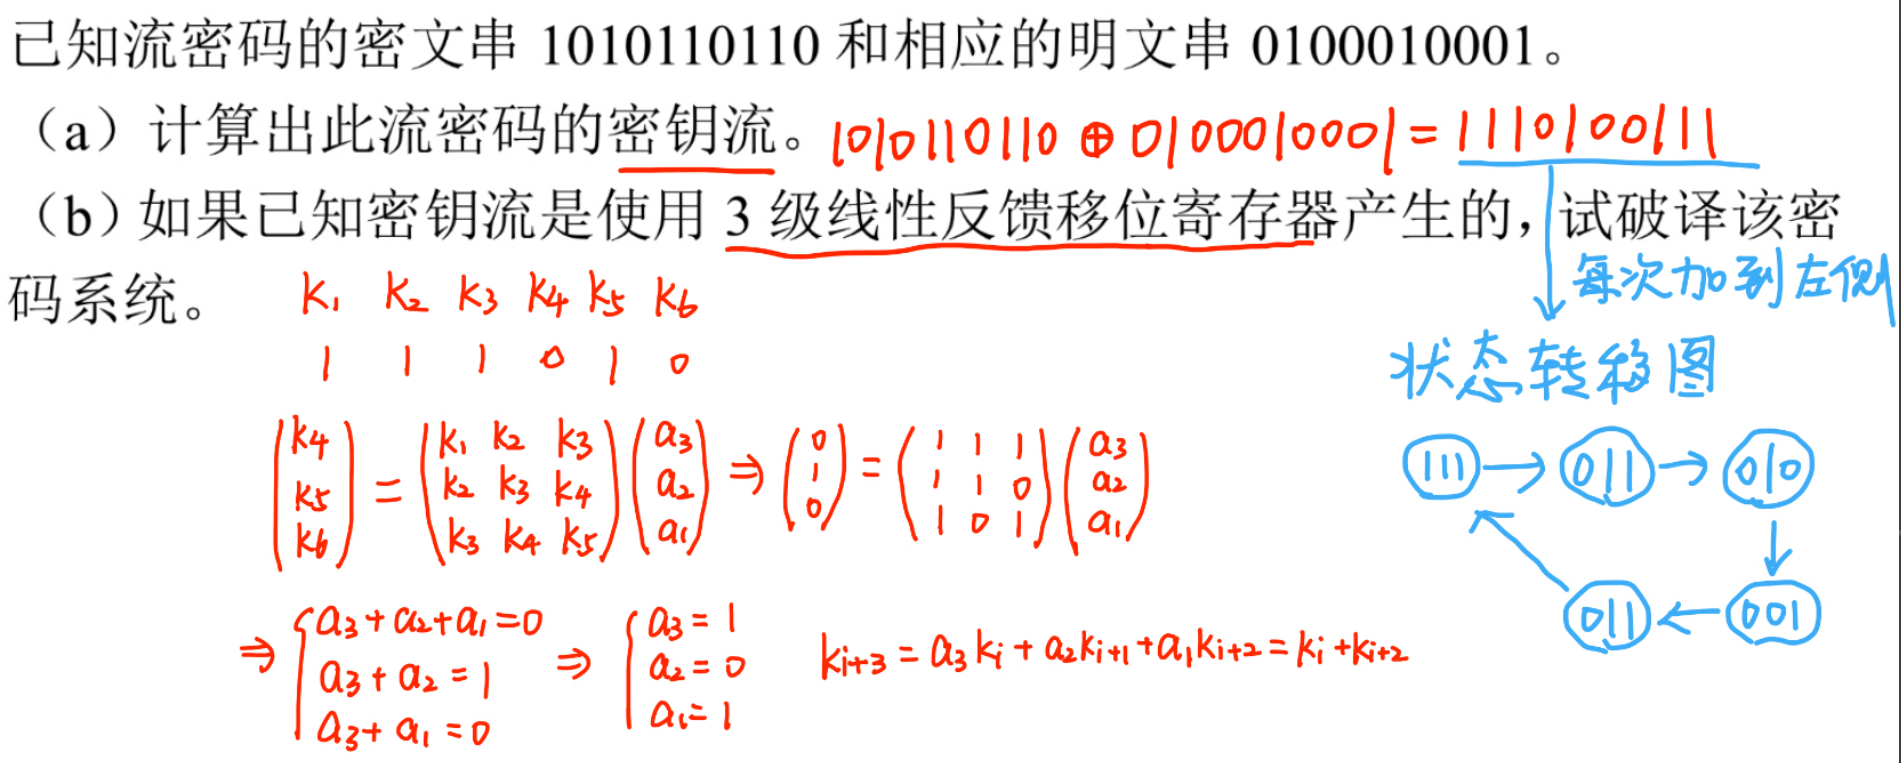 已知流密码的密文串 1010110110 和相应的明文串 0100010001。
（a）计算出此流密码的密钥流。 1010110110 ⊕ 0100010001 = 1110100111
（b）如果已知密钥流是使用 3 级线性反馈移位寄存器产生的，试破译该密
码系统。
每次加到左侧
状态转移图
k₁ k₂ k₃ k₄ k₅ k₆
1 1 1 0 1 0
(k₄ k₅ k₆) = (k₁ k₂ k₃ k₂ k₃ k₄ k₃ k₄ k₅) (a₃ a₂ a₁) ⇒ (0 1 0) = (1 1 1 1 1 0 1 0 1) (a₃ a₂ a₁)
111 → 011 → 010
011 ← 001
⇒ { a₃+a₂+a₁=0 ⇒ { a₃=1
a₃+a₂=1 a₂=0 kᵢ₊₃ = a₃kᵢ + a₂kᵢ₊₁ + a₁kᵢ₊₂ = kᵢ + kᵢ₊₂
a₃+a₁=0 a₁=1